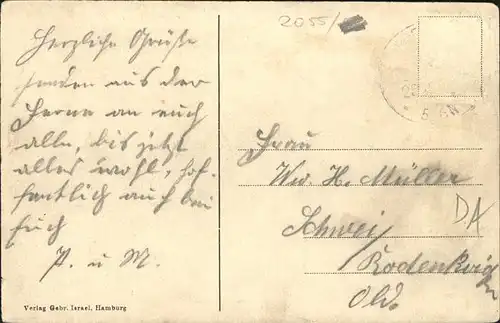 2055/
Herzliche Grüße
senden aus der
Ferne an euch
alle, bis jetzt
alles wohl, hof-
fentlich auch bei
Euch
P. u M.
Frau
Ww. H. Müller
Schwei
Rodenkirchen
Old.
DA
Verlag Gebr. Israel, Hamburg